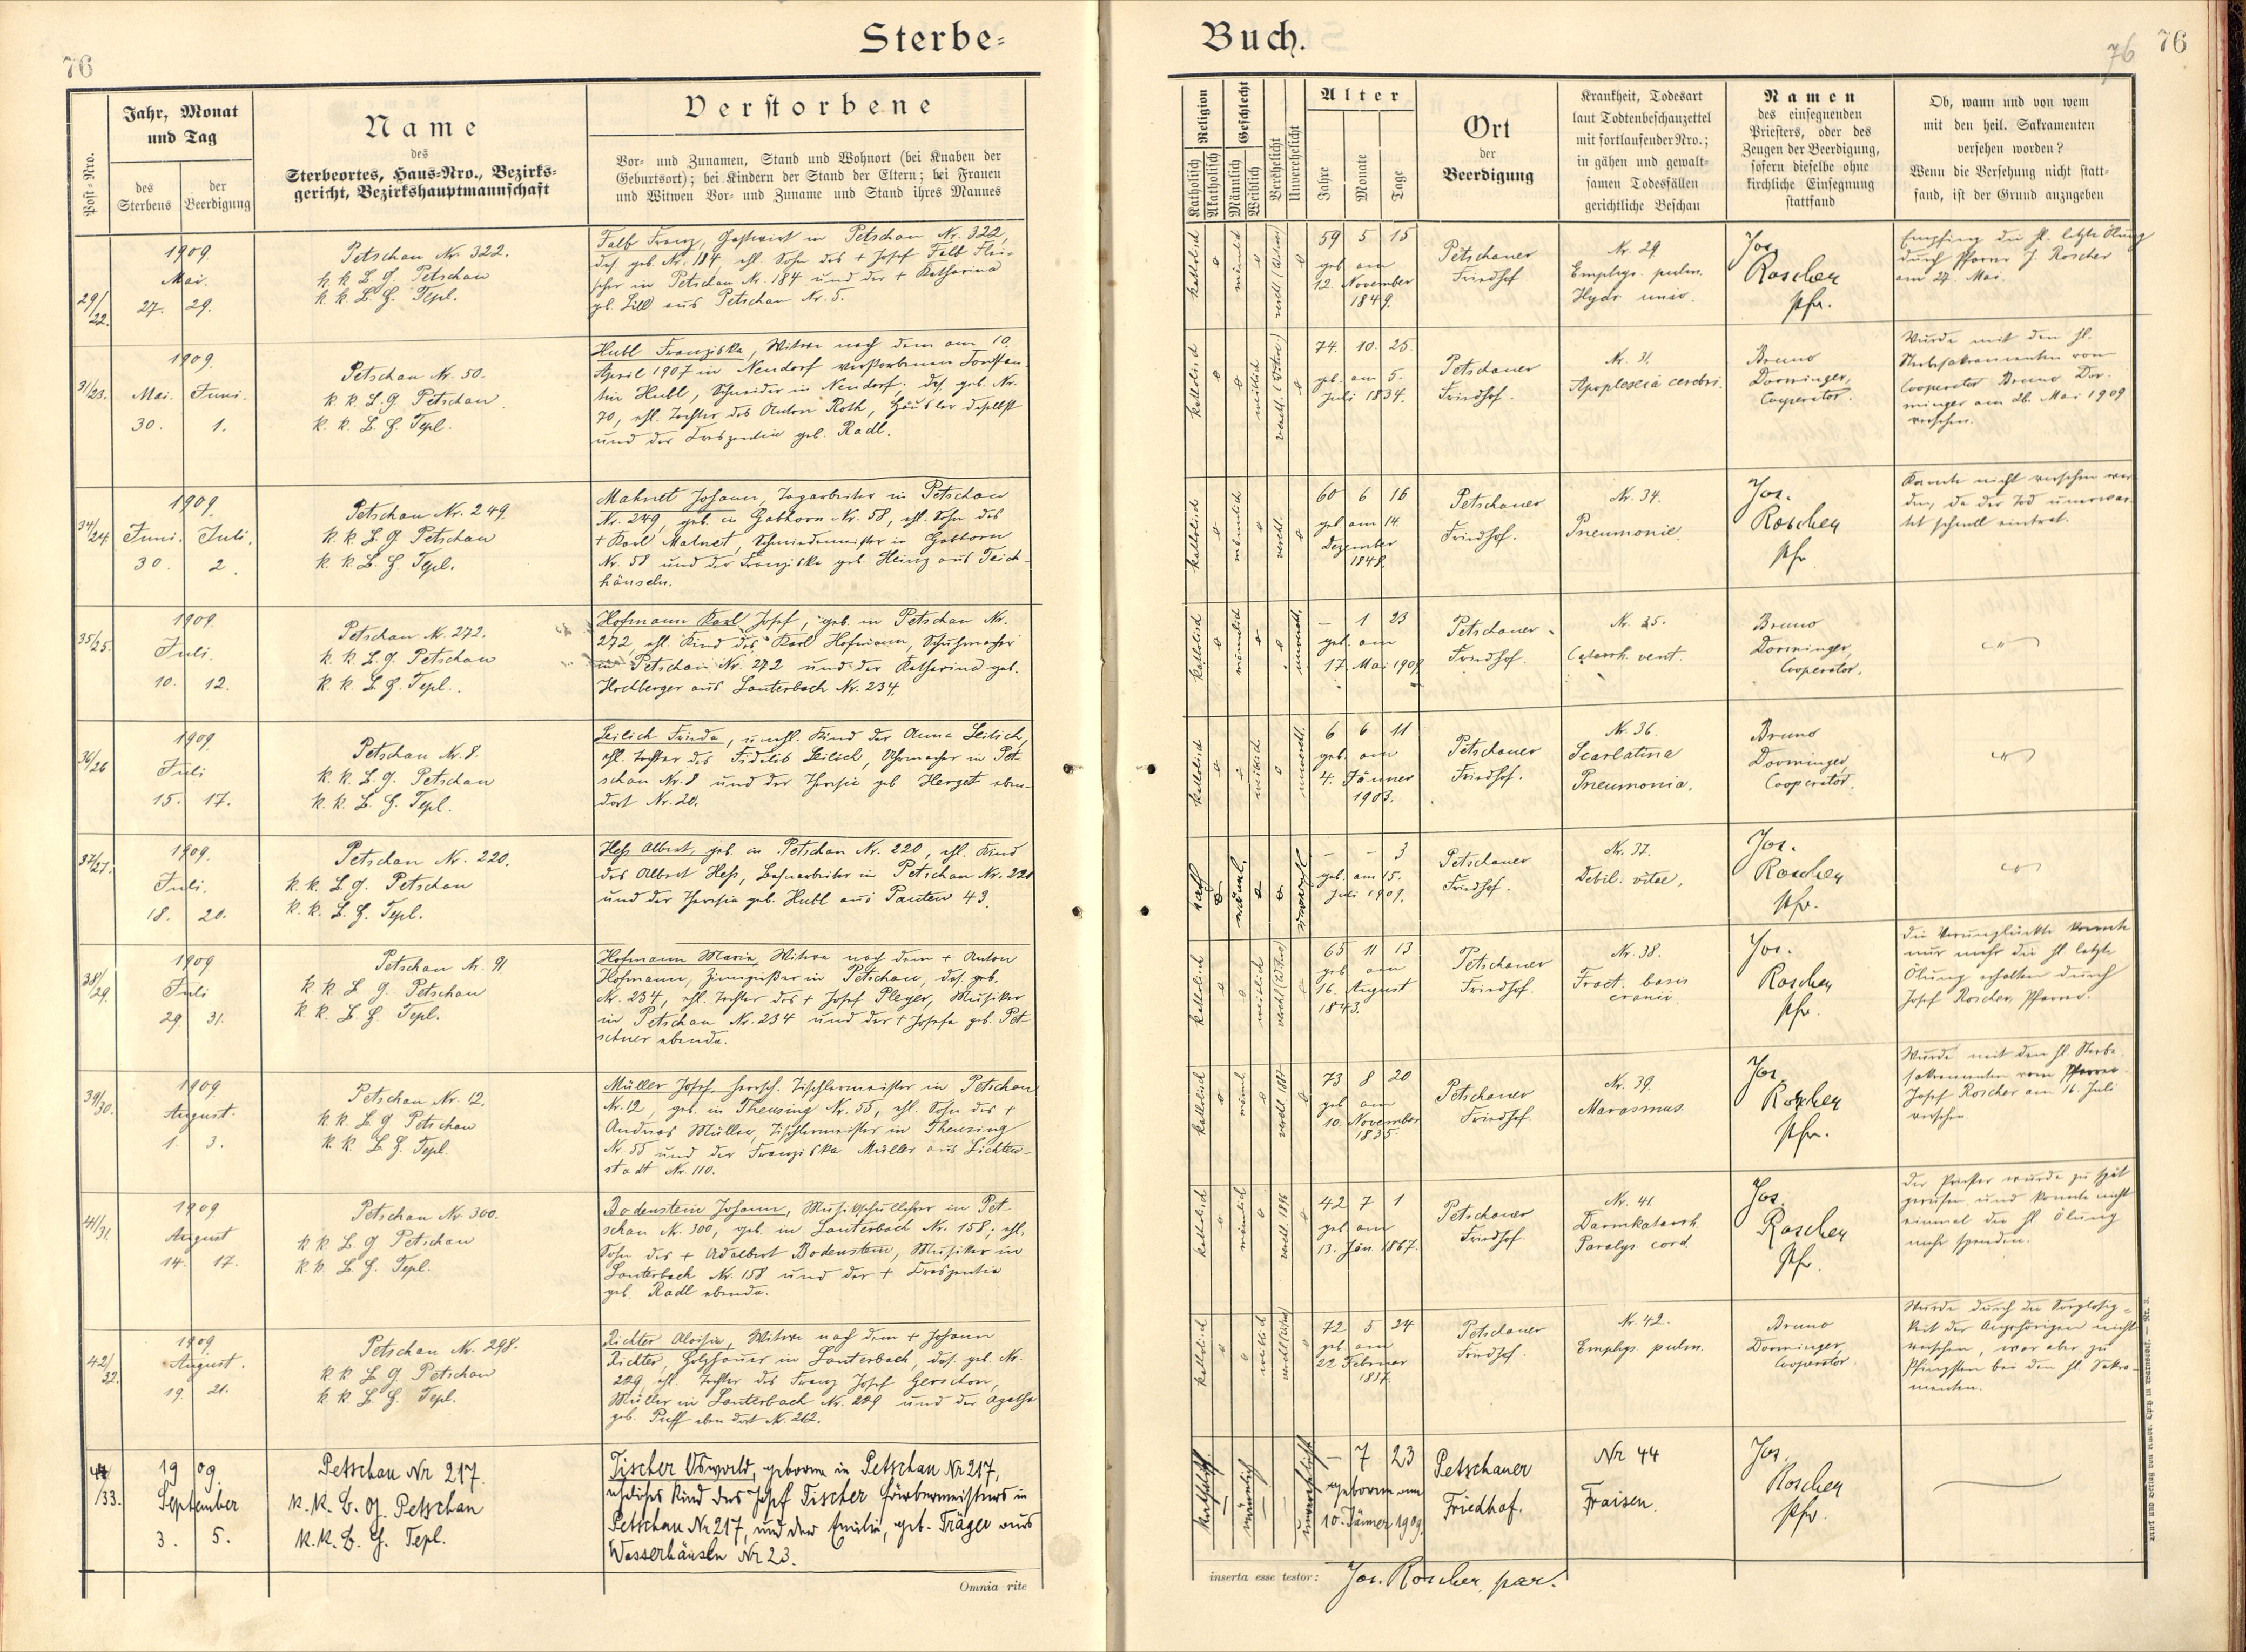 76
Sterbe=
Post=Nro.
Jahr, Monat
und Tag
des
Sterbens
der
Beerdigung
Name
des
Sterbeortes, Haus=Nro., Bezirks=
gericht, Bezirkshauptmannschaft
Verstorbene
Vor= und Zunamen, Stand und Wohnort (bei Knaben der
Geburtsort); bei Kindern der Stand der Eltern; bei Frauen
und Witwen Vor= und Zuname und Stand ihres Mannes
29/22.
1909
Mai.
27. 29.
Petschau Nr. 322.
k. k. B. G. Petschau
k. k. B. H. Tepl.
Falb Franz, Gastwirt in Petschau Nr. 322,
das. geb. Nr. 184 ehl. Sohn des + Josef Falb Flei=
scher in Petschau Nr. 184 und der + Katharina
gb. Lill aus Petschau Nr. 5.
31/23.
1909.
Mai. Juni.
30. 1.
Petschau Nr. 50.
k. k. B. G. Petschau
k. k. B. H. Tepl.
Hubl Franziska, Witwe nach dem am 10.
April 1907 in Neudorf verstorbenen Konstan
tin Hubl, Schneider in Neudorf. das. geb. Nr.
70, ehl. Tochter des Anton Roth, Häusler daselbst
und der Kreszentia geb. Radl.
34/24
1909.
Juni. Juli.
30. 2.
Petschau Nr. 249.
k. k. B. G. Petschau
k. k. B. H. Tepl.
Mahnet Johann, Tagarbeiter in Petschau
Nr. 249, geb. in Gabhorn Nr. 58, ehl. Sohn des
+ Karl Mahnet, Schmiedemeister in Gabhorn
Nr. 58 und der Franziska geb. Heinz aus Teich
häuseln.
35/25.
1909.
Juli.
10. 12.
Petschau Nr. 272.
k. k. B. G. Petschau
k. k. B. H. Tepl.
Hofmann Karl Josef, geb. in Petschau Nr.
272, ehl. Kind des Karl Hofmann, Schuhmacher
in Petschau Nr. 272 und der Katharina geb.
Hochberger aus Lauterbach Nr. 234.
36/26
1909.
Juli
15. 17.
Petschau Nr. 8.
k. k. B. G. Petschau
k. k. B. H. Tepl.
Leilich Frieda, unehl. Kind der Anna Leilich,
ehl. Tochter des Fidelis Leilich, Uhrmacher in Pet
schau Nr. 8 und der Theresia geb Herget eben-
dort Nr. 20.
37/27.
1909.
Juli.
18. 20.
Petschau Nr. 220.
k. k. B. G. Petschau
k. k. B. H. Tepl.
Heß Albert, geb. in Petschau Nr. 220, ehl. Kind
des Albert Heß, Bahnarbeiter in Petschau Nr. 220
und der Theresia geb. Hubl aus Pauten 43.
38/29.
1909
Juli
29. 31.
Petschau Nr. 91
k. k. B. G. Petschau
k. k. B. H. Tepl.
Hofmann Maria, Witwe nach dem + Anton
Hofmann, Zinngießer in Petschau, das. geb.
Nr. 234, ehl. Tochter des + Josef Pleyer, Musiker
in Petschau Nr. 234 und der + Josefa geb. Pet
schner ebenda.
39/30.
1909
August.
1. 3.
Petschau Nr. 12.
k. k. B. G. Petschau
k. k. B. H. Tepl.
Müller Josef, herrsch. Tischlermeister in Petschau
Nr. 12, geb. in Theusing Nr. 55, ehl. Sohn des +
Andreas Müller, Tischlermeister in Theusing
Nr. 55 und der Franziska Müller aus Lichten-
stadt Nr. 110.
41/31.
1909
August
14. 17.
Petschau Nr. 300.
k. k. B. G. Petschau
k. k. B. H. Tepl.
Bodenstein Johann, Musikschullehrer in Pet
schau Nr. 300, geb. in Lauterbach Nr. 158; ehl.
Sohn des + Adalbert Bodenstein, Musiker in
Lauterbach Nr. 158 und der + Kreszentia
geb. Radl ebenda.
42/32.
1909.
August.
19. 21.
Petschau Nr. 298.
k. k. B. G. Petschau
k. k. B. H. Tepl.
Richter Aloisia, Witwe nach dem + Johann
Richter, Holzhauer in Lauterbach, das. geb. Nr.
229, ehl. Tochter des Franz Josef
Müller in Lauterbach Nr. 229 und der Agatha
geb. Puff eben dort Nr. 262.
44/33.
1909.
September
3. 5.
Petschau Nr 217.
k. k. B. G. Petschau
k. k. B. H. Tepl.
Tischer Oswald, geboren in Petschau Nr 217,
eheliches Kind des Josef Tischer Färbermeisters in
Petschau Nr 217, und der Emilie, geb. Träger aus
Wasserhäuseln Nr 23.
Omnia rite
Buch.
76
76
Religion
Katholisch
Akatholisch
Geschlecht
Männlich
Weiblich
Verehelicht
Unverehelicht
Alter
Jahre
Monate
Tage
Ort
der
Beerdigung
Krankheit, Todesart
laut Todtenbeschauzettel
mit fortlaufender Nro.;
in gähen und gewalt=
samen Todesfällen
gerichtliche Beschau
Namen
des einsegnenden
Priesters, oder des
Zeugen der Beerdigung,
sofern dieselbe ohne
kirchliche Einsegnung
stattfand
Ob, wann und von wem
mit den heil. Sakramenten
versehen worden?
Wenn die Versehung nicht statt=
fand, ist der Grund anzugeben
katholisch
männlich
59 5 15
geb. am
12. November
1849.
Petschauer
Friedhof.
Nr. 29
Emphys. pulm.
Jos.
Roscher
Pfr.
Empfing die hl. letzte Ölung
durch Pfarrer J. Roscher
am 27. Mai.
katholisch
weiblich
74. 10. 25.
geb. am 5.
Juli 1834.
Petschauer
Friedhof.
Nr. 31.
Apoplexia cerebri.
Bruno
Dorminger,
Cooperator.
Wurde mit den hl.
Sterbesakramenten vom
Cooperator Bruno Dor-
minger am 26. Mai 1909
versehen.
katholisch
männlich
verehl.
60 6 16
geb. am 14.
Dezember
1848.
Petschauer
Friedhof.
Nr. 34.
Pneumonie.
Jos.
Roscher
Pfr
Konnte nicht versehen wer
den, da der Tod unerwar
tet schnell eintrat.
katholisch
männlich
unverehl.
– 1 23
geb. am
17. Mai 1909.
Petschauer
Friedhof.
Nr. 35.
Catarrh. vent.
Bruno
Dorminger,
Cooperator.
katholisch
weiblich
unverehl.
6 6 11
geb. am
4. Jänner
1903.
Petschauer
Friedhof.
Nr. 36.
Scarlatina
Pneumonia.
Bruno
Dorminger,
Cooperator.
kath
männl.
– – 3
geb. am 15.
Juli 1909.
Petschauer
Friedhof.
Nr. 37.
Debil. vitae.
Jos.
Roscher
Pfr.
katholisch
weiblich
65 11 13
geb. am
16. August
1843.
Petschauer
Friedhof.
Nr. 38.
Fract. basis
cranii
Jos.
Roscher
Pfr.
Die Verunglückte konnte
nur mehr die hl. letzte
Ölung erhalten durch
Josef Roscher, Pfarrer.
katholisch
männl
73 8 20
geb. am
10. November
1835.
Petschauer
Friedhof.
Nr. 39.
Marasmus.
Jos.
Roscher
Pfr.
Wurde mit den hl. Sterbe
sakramenten vom Pfarrer
Josef Roscher am 16. Juli
versehen
katholisch
männlich
verehl 1896
42 7 1
geb. am
13. Jän. 1867.
Petschauer
Friedhof.
Nr. 41.
Darmkatarrh.
Paralys. cord.
Jos.
Roscher
Pfr.
Der Priester wurde zu spät
gerufen und konnte nicht
einmal die hl Ölung
mehr spenden.
katholisch
weiblich
72 5 24
geb. am
22. Februar
1837.
Petschauer
Friedhof.
Nr. 42.
Emphys. pulm.
Bruno
Dorminger,
Cooperator.
Wurde durch die Sorglosig=
keit der Angehörigen nicht
versehen, war aber zu
Pfingsten bei den hl. Sakra-
menten.
katholisch.
männlich
unverehelicht
– 7 23
geboren am
10. Jänner 1909.
Petschauer
Friedhof.
Nr 44
Fraisen.
Jos.
Roscher
Pfr.
inserta esse testor: Jos. Roscher, par.